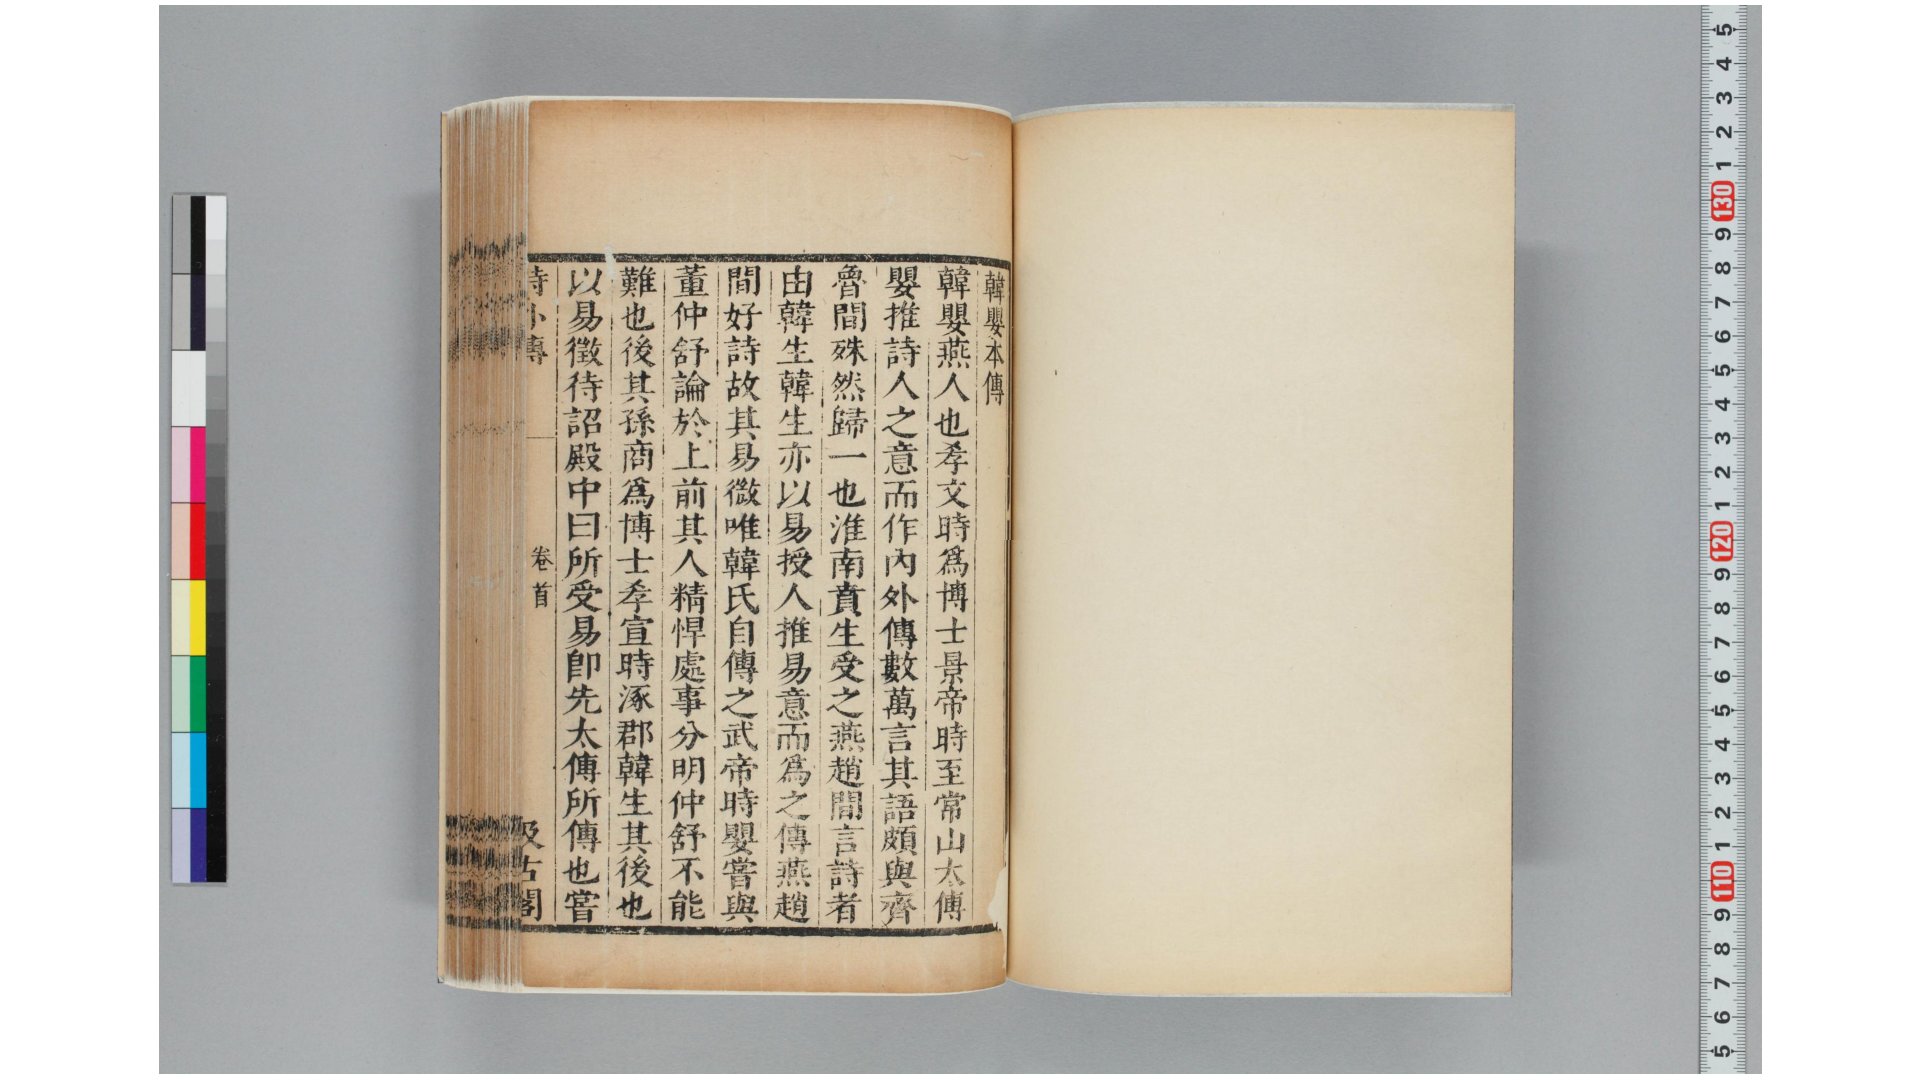 韓嬰本傳
韓嬰燕人也孝文時爲博士景帝時至常山太傅
嬰推詩人之意而作內外傳數萬言其語頗與齊
魯間殊然歸一也淮南賁生受之燕趙間言詩者
由韓生韓生亦以易授人推易意而爲之傳燕趙
間好詩故其易微唯韓氏自傳之武帝時嬰嘗與
董仲舒論於上前其人精悍處事分明仲舒不能
難也後其孫商爲博士孝宣時涿郡韓生其後也
以易徵待詔殿中曰所受易卽先太傅所傳也嘗
詩外傳
卷首
汲古閣
5
4
3
2
1
130
9
8
7
6
5
4
3
2
1
120
9
8
7
6
5
4
3
2
1
110
9
8
7
6
5